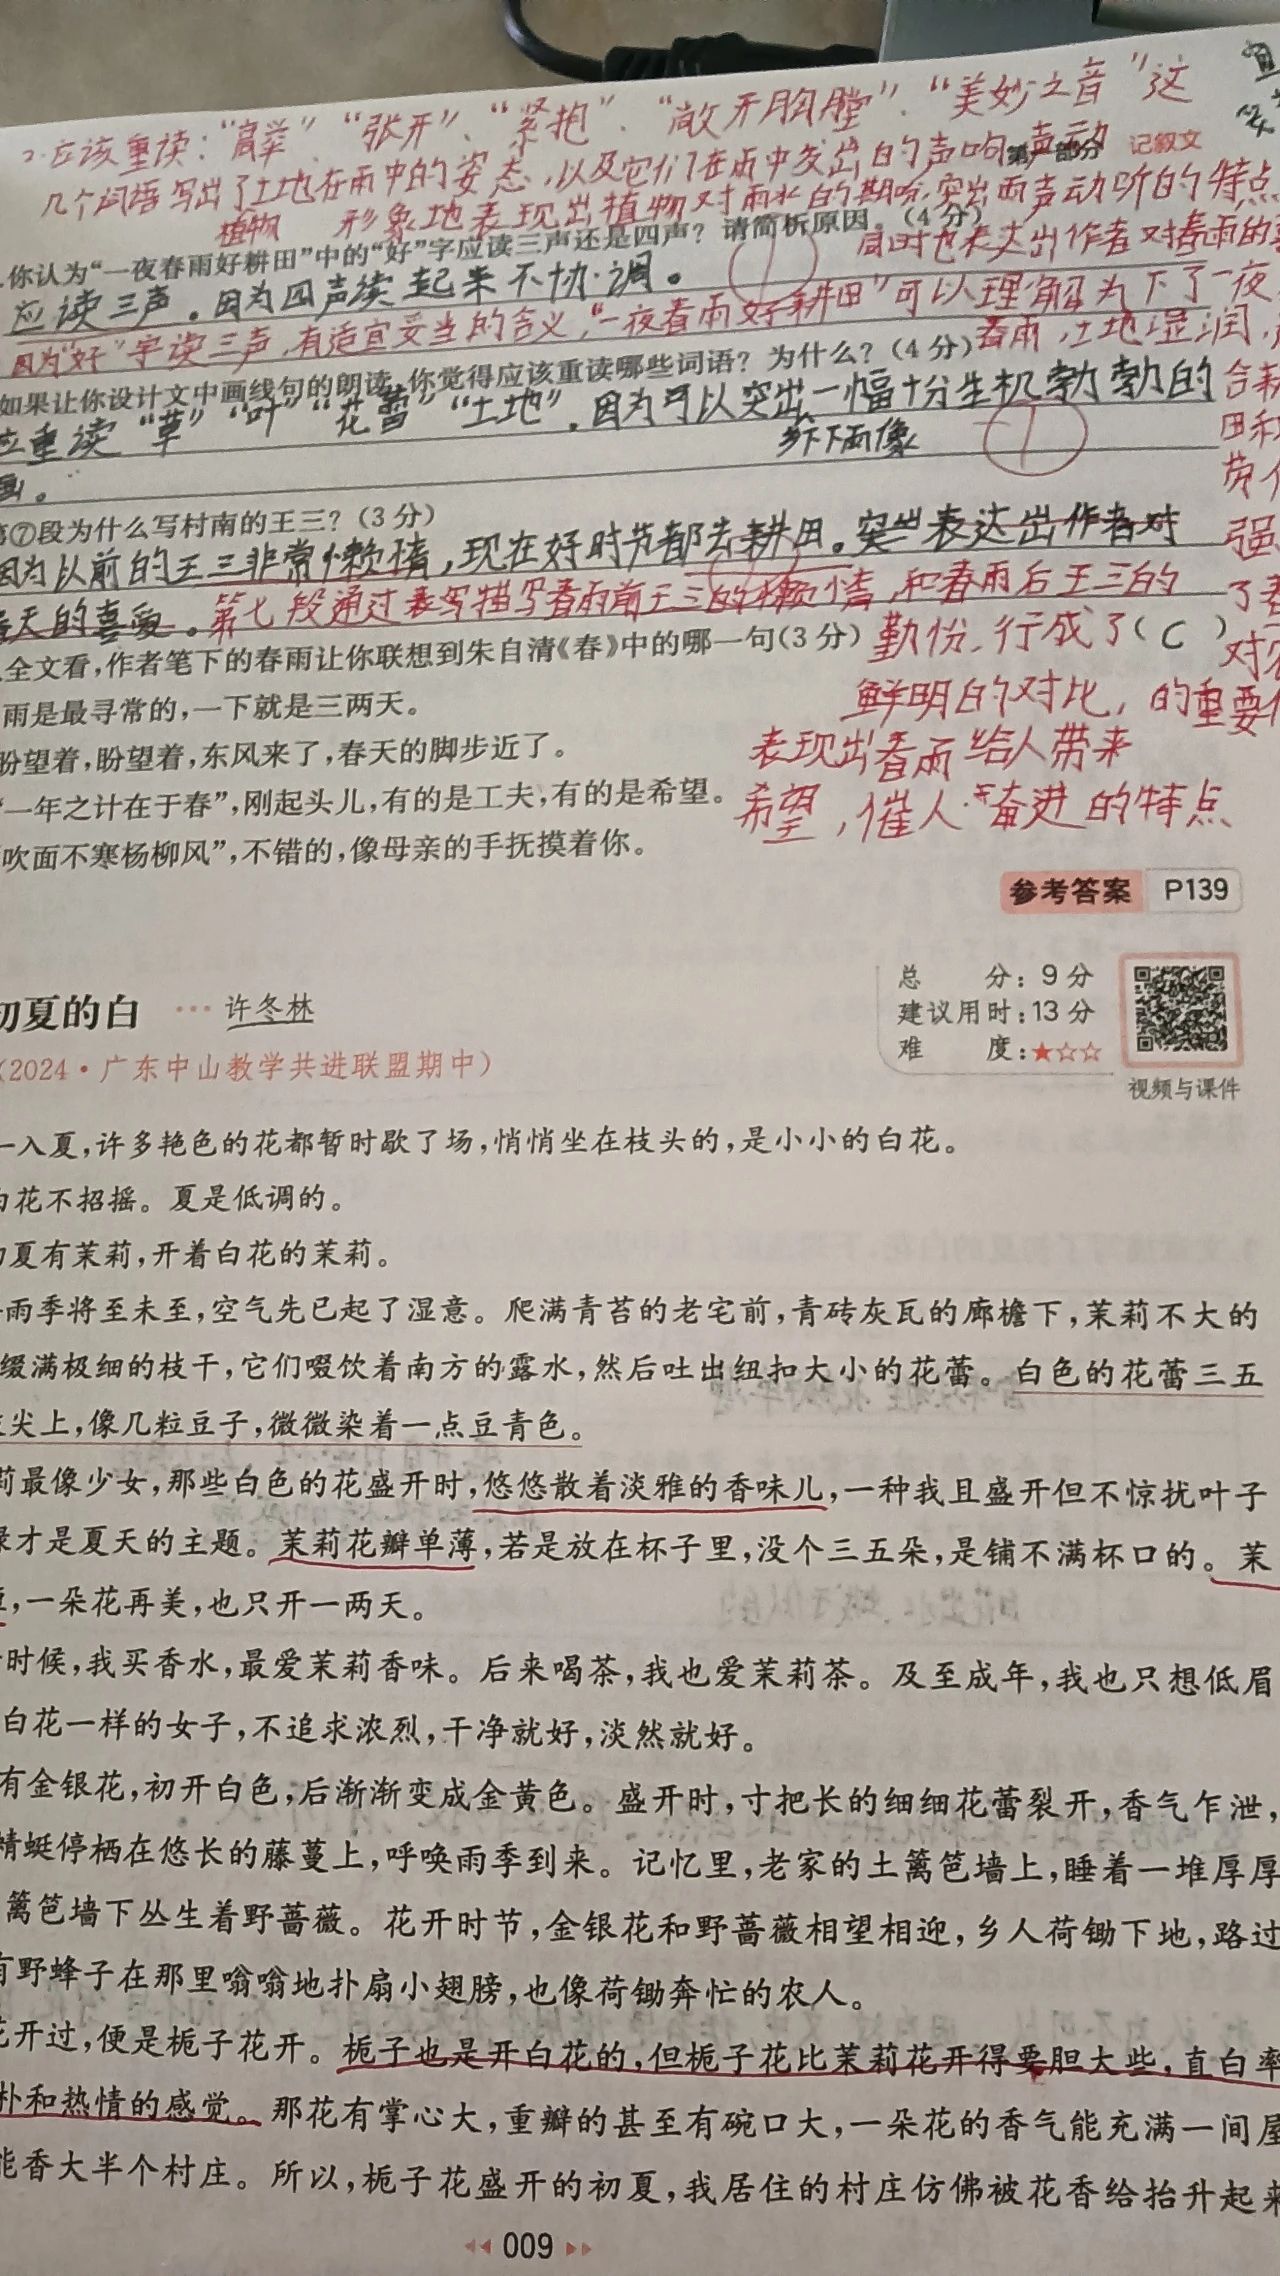 2.应该重读:“高举”、“张开”、“紧抱”、“敞开胸膛”、“美妙之音”这
第一部分 记叙文
几个词语写出了土地在雨中的姿态,以及它们在雨中发出的声响声动
植物 形象地表现出植物对雨水的期盼,突出雨声动听的特点
.你认为“一夜春雨好耕田”中的“好”字应读三声还是四声?请简析原因。(4分)
同时也表达出作者对春雨的
应读三声。因为四声读起来不协调。
因为“好”字读三声,有适宜妥当的含义,“一夜春雨好耕田”可以理解为下了一夜
春雨,土地湿润,
如果让你设计文中画线句的朗读,你觉得应该重读哪些词语?为什么?(4分)
应重读“草”“叶”“花雪”“土地”.因为可以突出一幅十分生机勃勃的
合耕
乡下画像
田
画。
第⑦段为什么写村南的王三?(3分)
因为以前的王三非常懒惰,现在好时节都去耕田。突出表达出作者对
强
春天的喜爱。第七段通过表写描写春雨前王三的懒惰,和春雨后王三的
了春
从全文看,作者笔下的春雨让你联想到朱自清《春》中的哪一句(3分)
勤份,行成了( C )
对农
雨是最寻常的,一下就是三两天。
鲜明的对比,的重要
盼望着,盼望着,东风来了,春天的脚步近了。
表现出春雨给人带来
“一年之计在于春”,刚起头儿,有的是工夫,有的是希望。
希望,催人奋进的特点
吹面不寒杨柳风”,不错的,像母亲的手抚摸着你。
参考答案 P139
初夏的白 … 许冬林
(2024·广东中山教学共进联盟期中)
总 分:9分
建议用时:13分
难 度:★☆☆
视频与课件
一入夏,许多艳色的花都暂时歇了场,悄悄坐在枝头的,是小小的白花。
白花不招摇。夏是低调的。
初夏有茉莉,开着白花的茉莉。
雨季将至未至,空气先已起了湿意。爬满青苔的老宅前,青砖灰瓦的廊檐下,茉莉不大的
缀满极细的枝干,它们啜饮着南方的露水,然后吐出纽扣大小的花蕾。白色的花蕾三五
尖上,像几粒豆子,微微染着一点豆青色。
莉最像少女,那些白色的花盛开时,悠悠散着淡雅的香味儿,一种我且盛开但不惊扰叶子
绿才是夏天的主题。茉莉花瓣单薄,若是放在杯子里,没个三五朵,是铺不满杯口的。茉
,一朵花再美,也只开一两天。
时候,我买香水,最爱茉莉香味。后来喝茶,我也爱茉莉茶。及至成年,我也只想低眉
白花一样的女子,不追求浓烈,干净就好,淡然就好。
有金银花,初开白色,后渐渐变成金黄色。盛开时,寸把长的细细花蕾裂开,香气乍泄,
蜻蜓停栖在悠长的藤蔓上,呼唤雨季到来。记忆里,老家的土篱笆墙上,睡着一堆厚厚
篱笆墙下丛生着野蔷薇。花开时节,金银花和野蔷薇相望相迎,乡人荷锄下地,路过
有野蜂子在那里嗡嗡地扑扇小翅膀,也像荷锄奔忙的农人。
花开过,便是栀子花开。栀子也是开白花的,但栀子花比茉莉花开得要胆大些,直白率
朴和热情的感觉。那花有掌心大,重瓣的甚至有碗口大,一朵花的香气能充满一间屋
能香大半个村庄。所以,栀子花盛开的初夏,我居住的村庄仿佛被花香给抬升起来
009